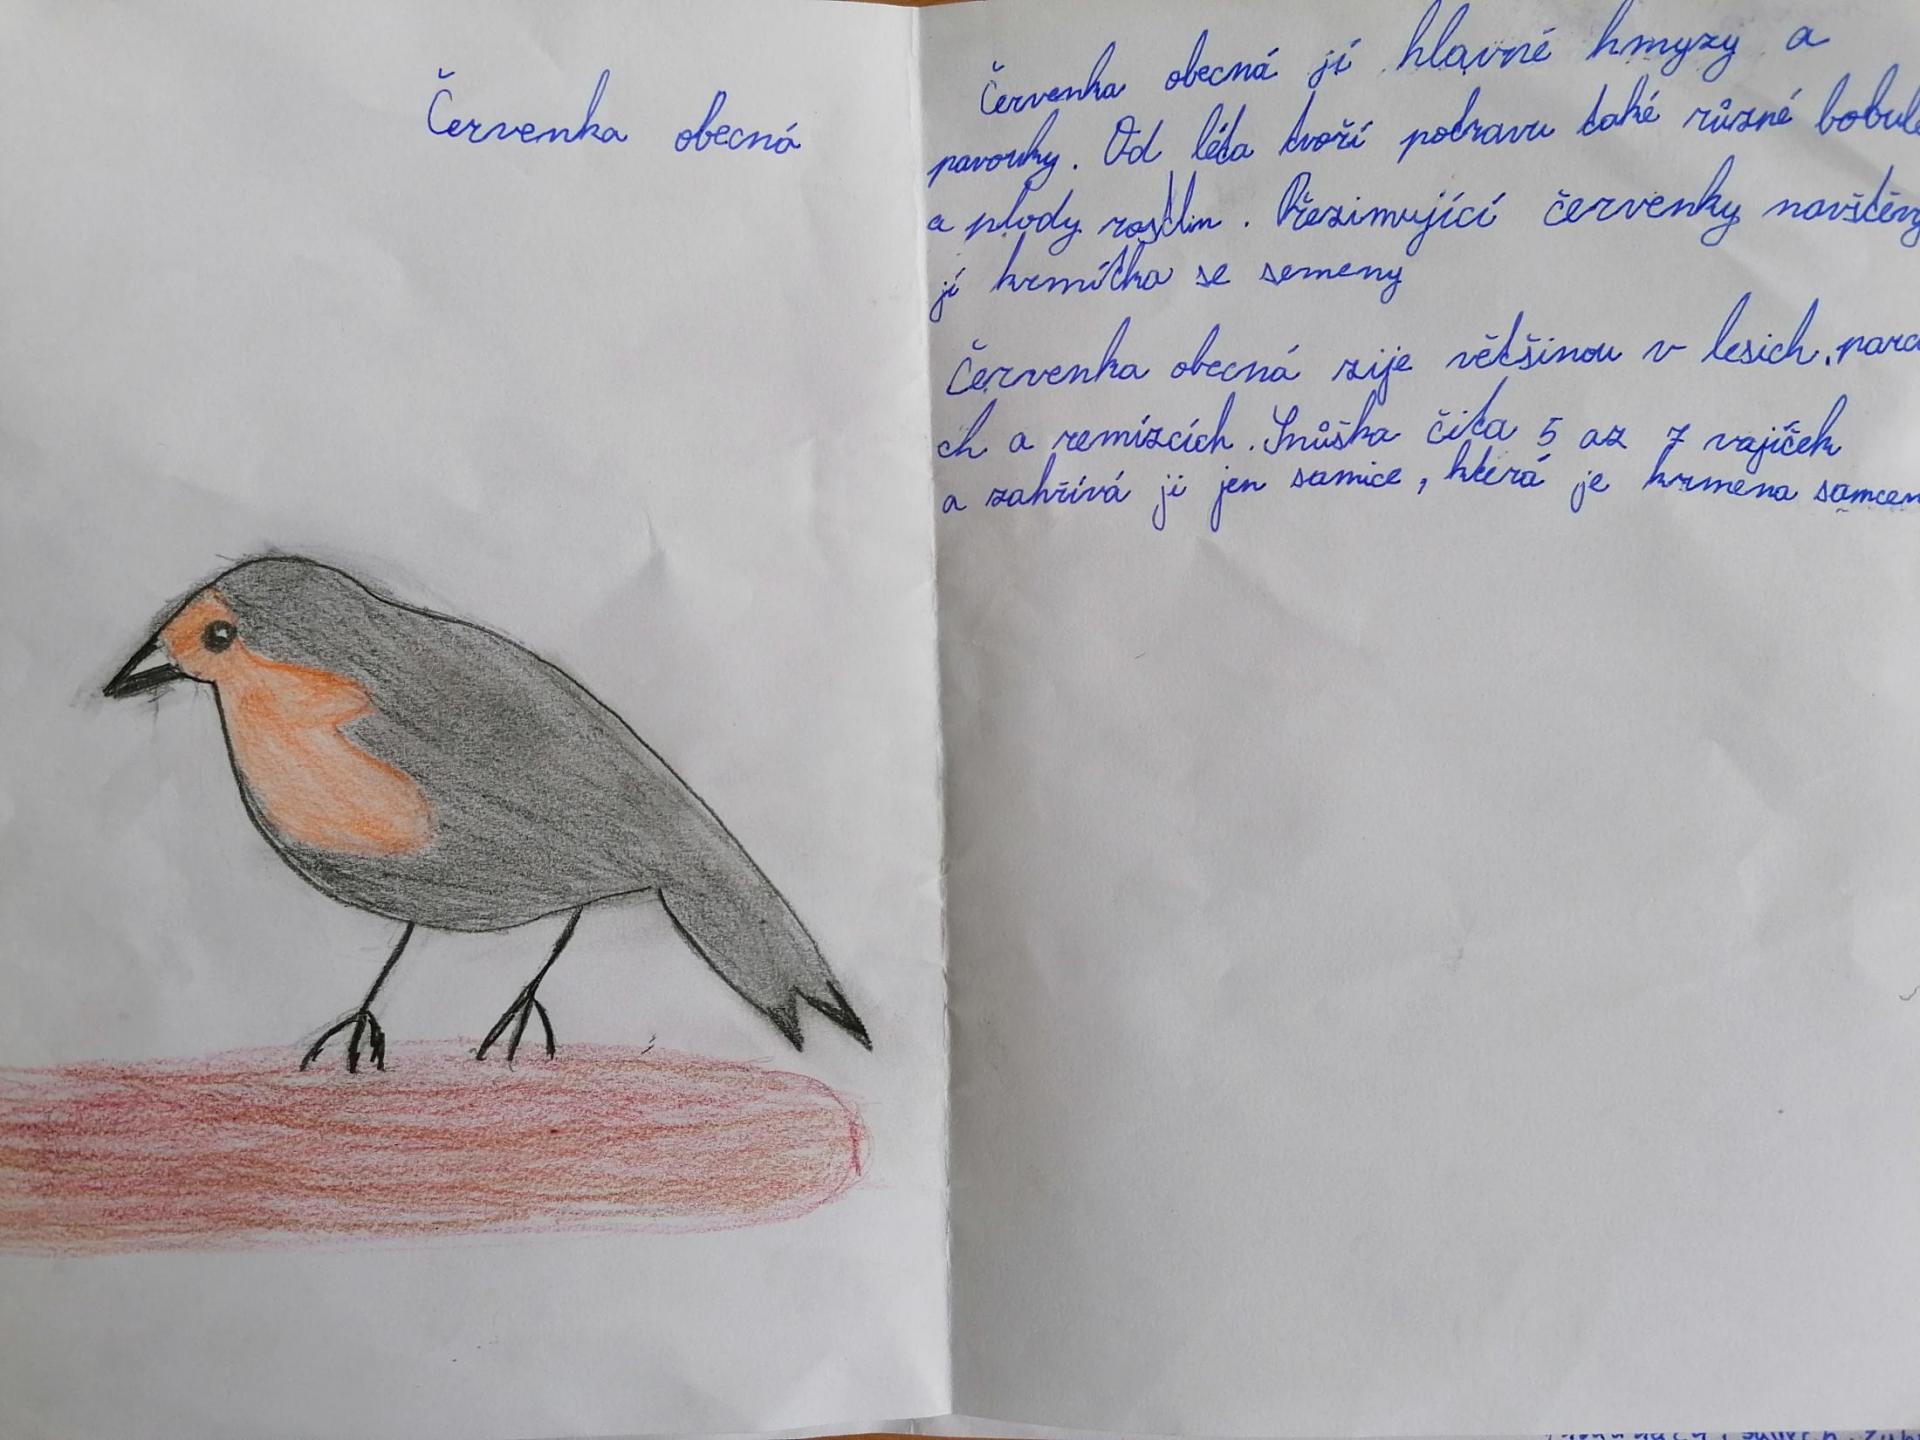 Červenka obecná
Červenka obecná jí hlavně hmyzy a
pavouky. Od léta tvoří potravu také různé bobule
a plody rostlin. Přezimující červenky navštěvu
jí krmítka se semeny
Červenka obecná zije většinou v lesich, parc
ch a remízcích. Snůška čita 5 az 7 vajíček
a zahřívá ji jen samice, která je krmena samcem